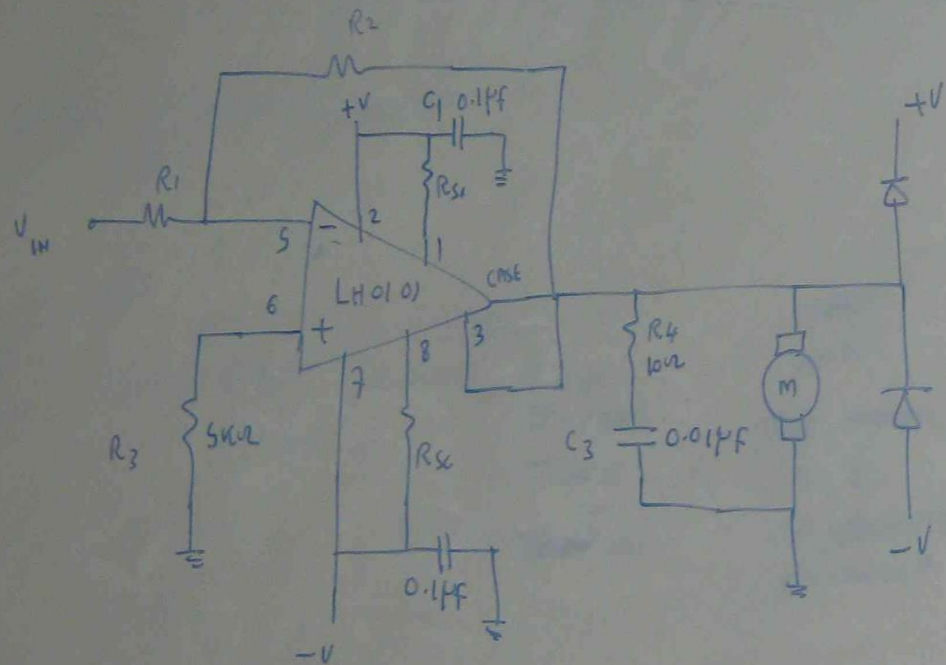 R2
+V
C1 0.1μf
+V
R1
RSc
VIN
5
−
2
1
LH0101
CASE
6
+
3
R4
10Ω
8
7
M
R3
5KΩ
RSC
C3
0.01μf
0.1μf
−V
−V